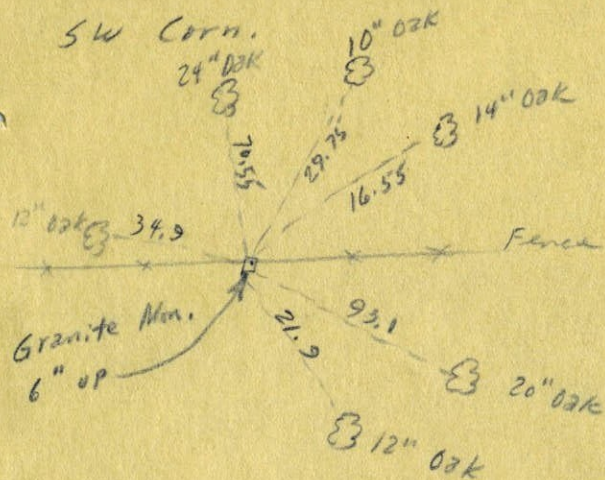 SW Corn.
10" Oak
24" Oak
14" Oak
70.55
29.75
16.55
12" Oak
34.9
Fence
Granite Mon.
6" up
21.9
93.1
20" Oak
12" Oak